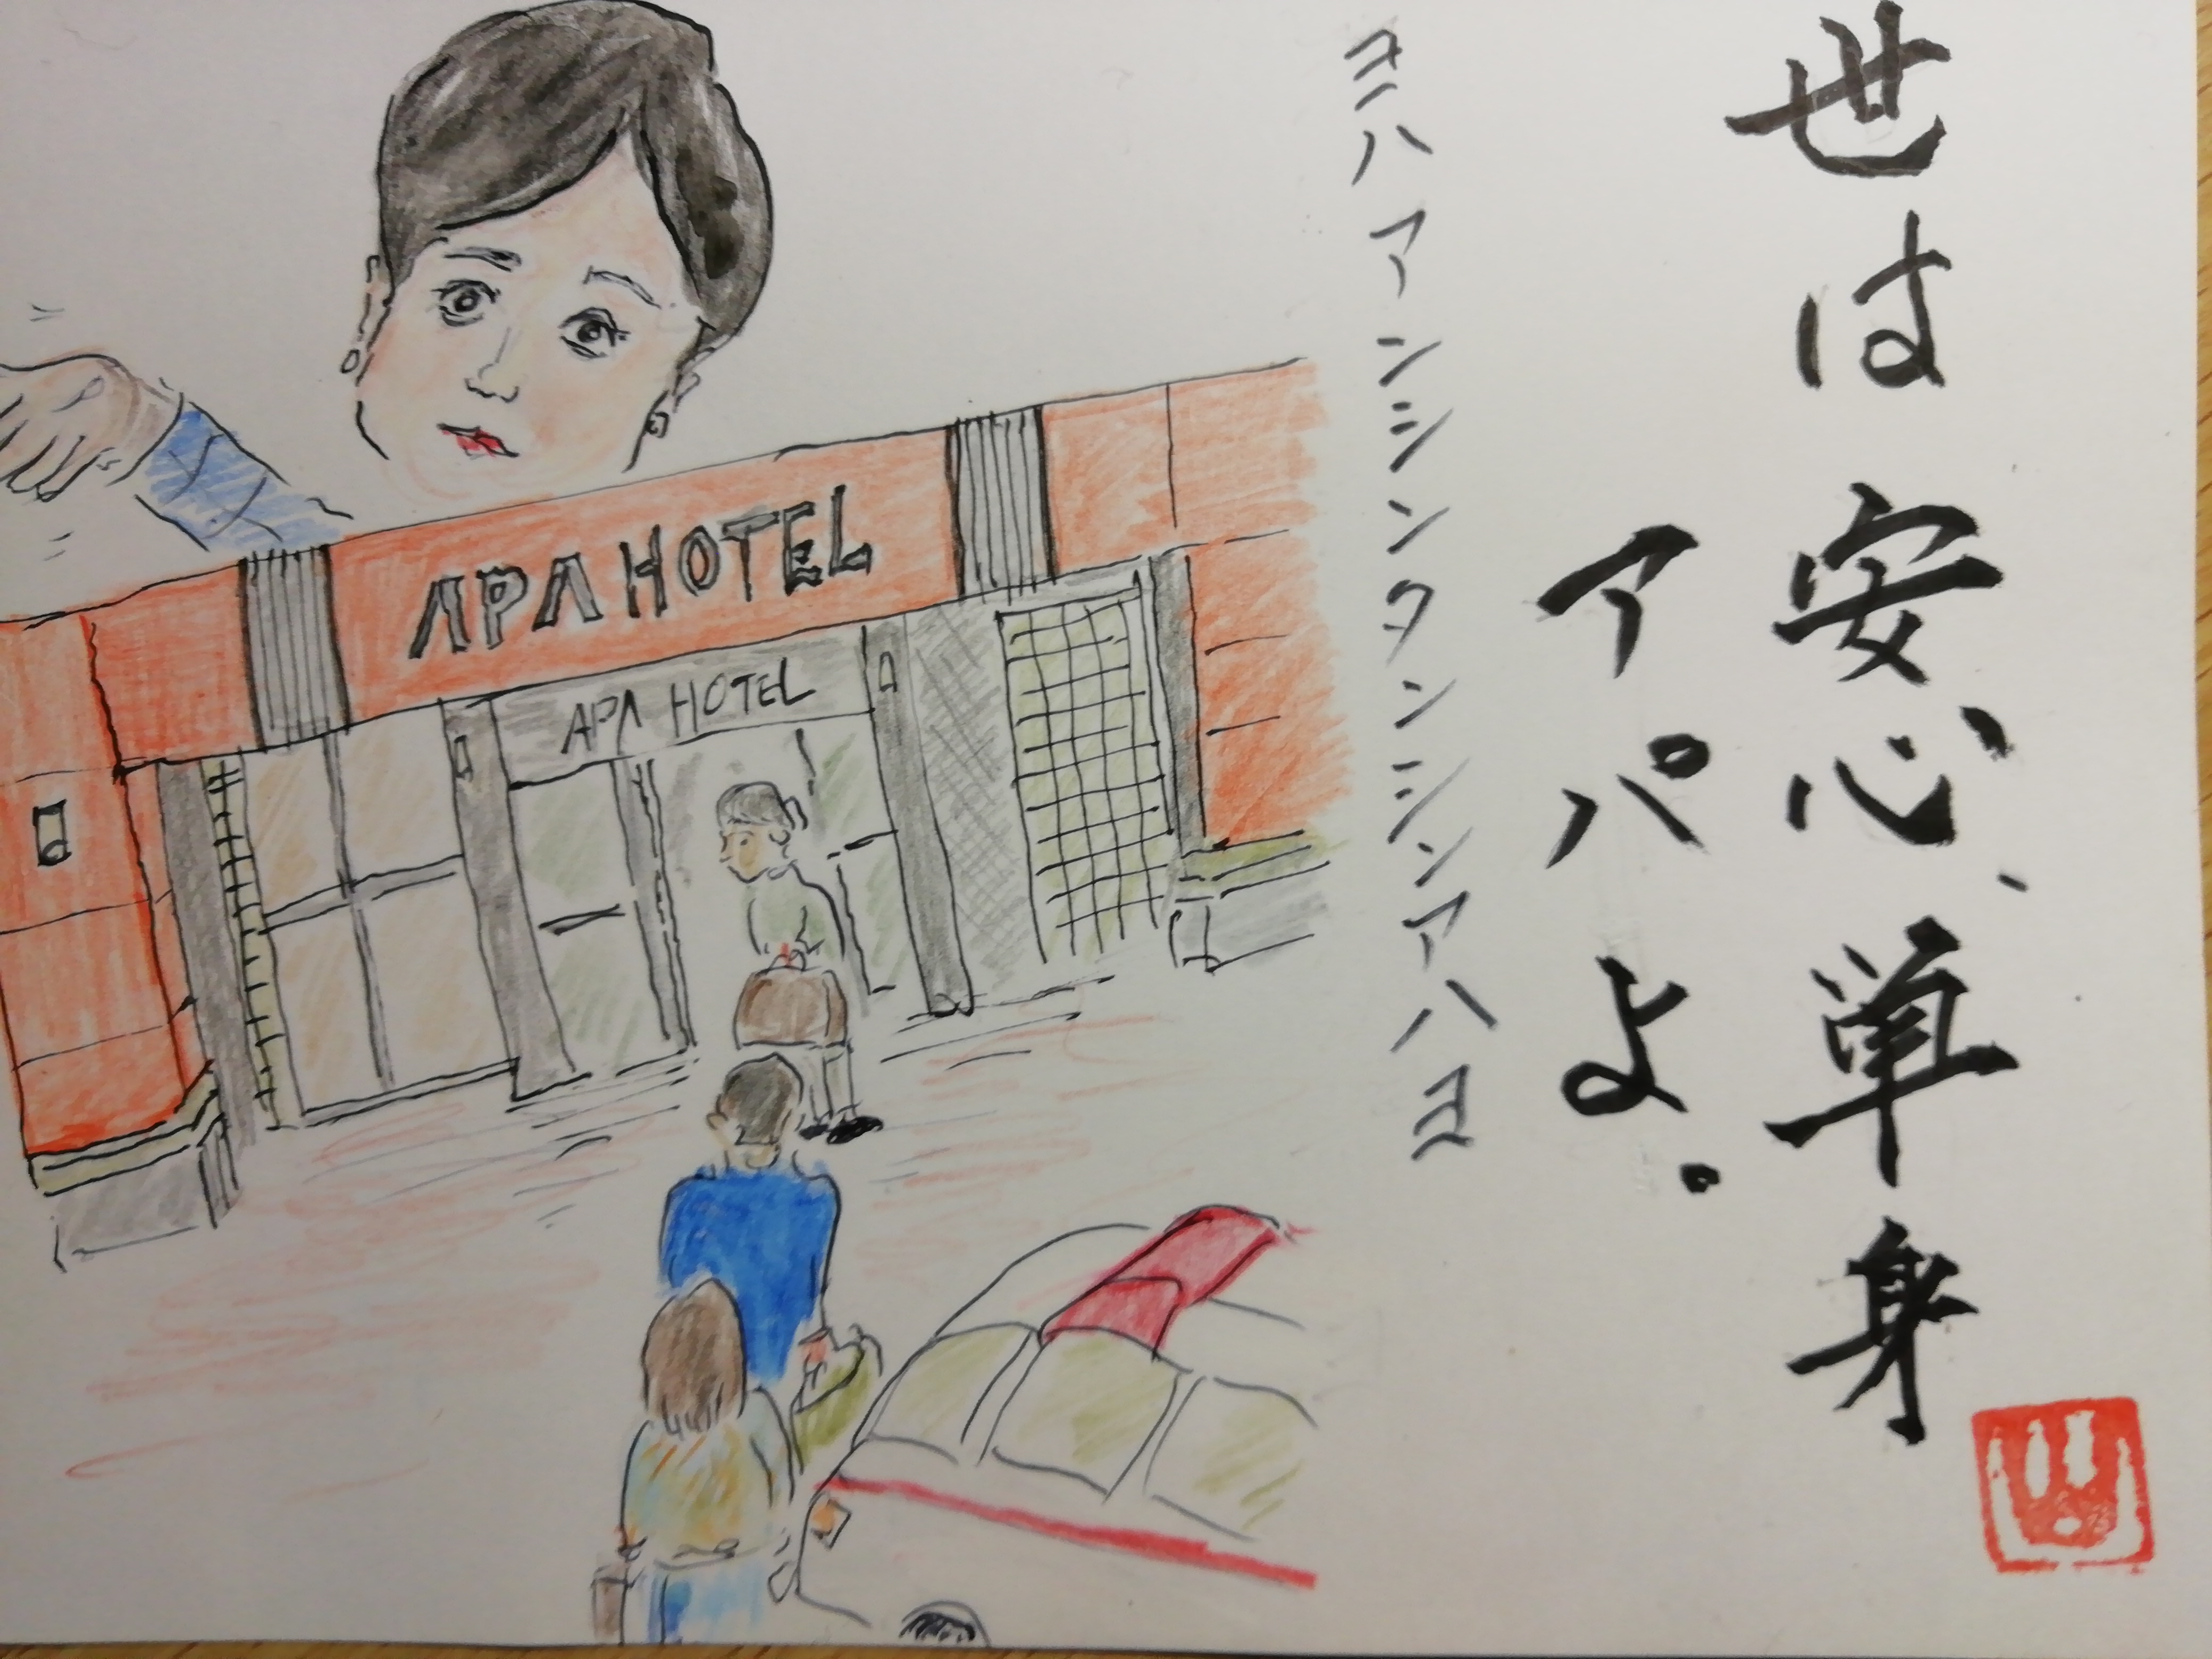 世は安心、単身
アパよ。
ヨハアンシンタンシンアハヨ
APA HOTEL
APA HOTEL